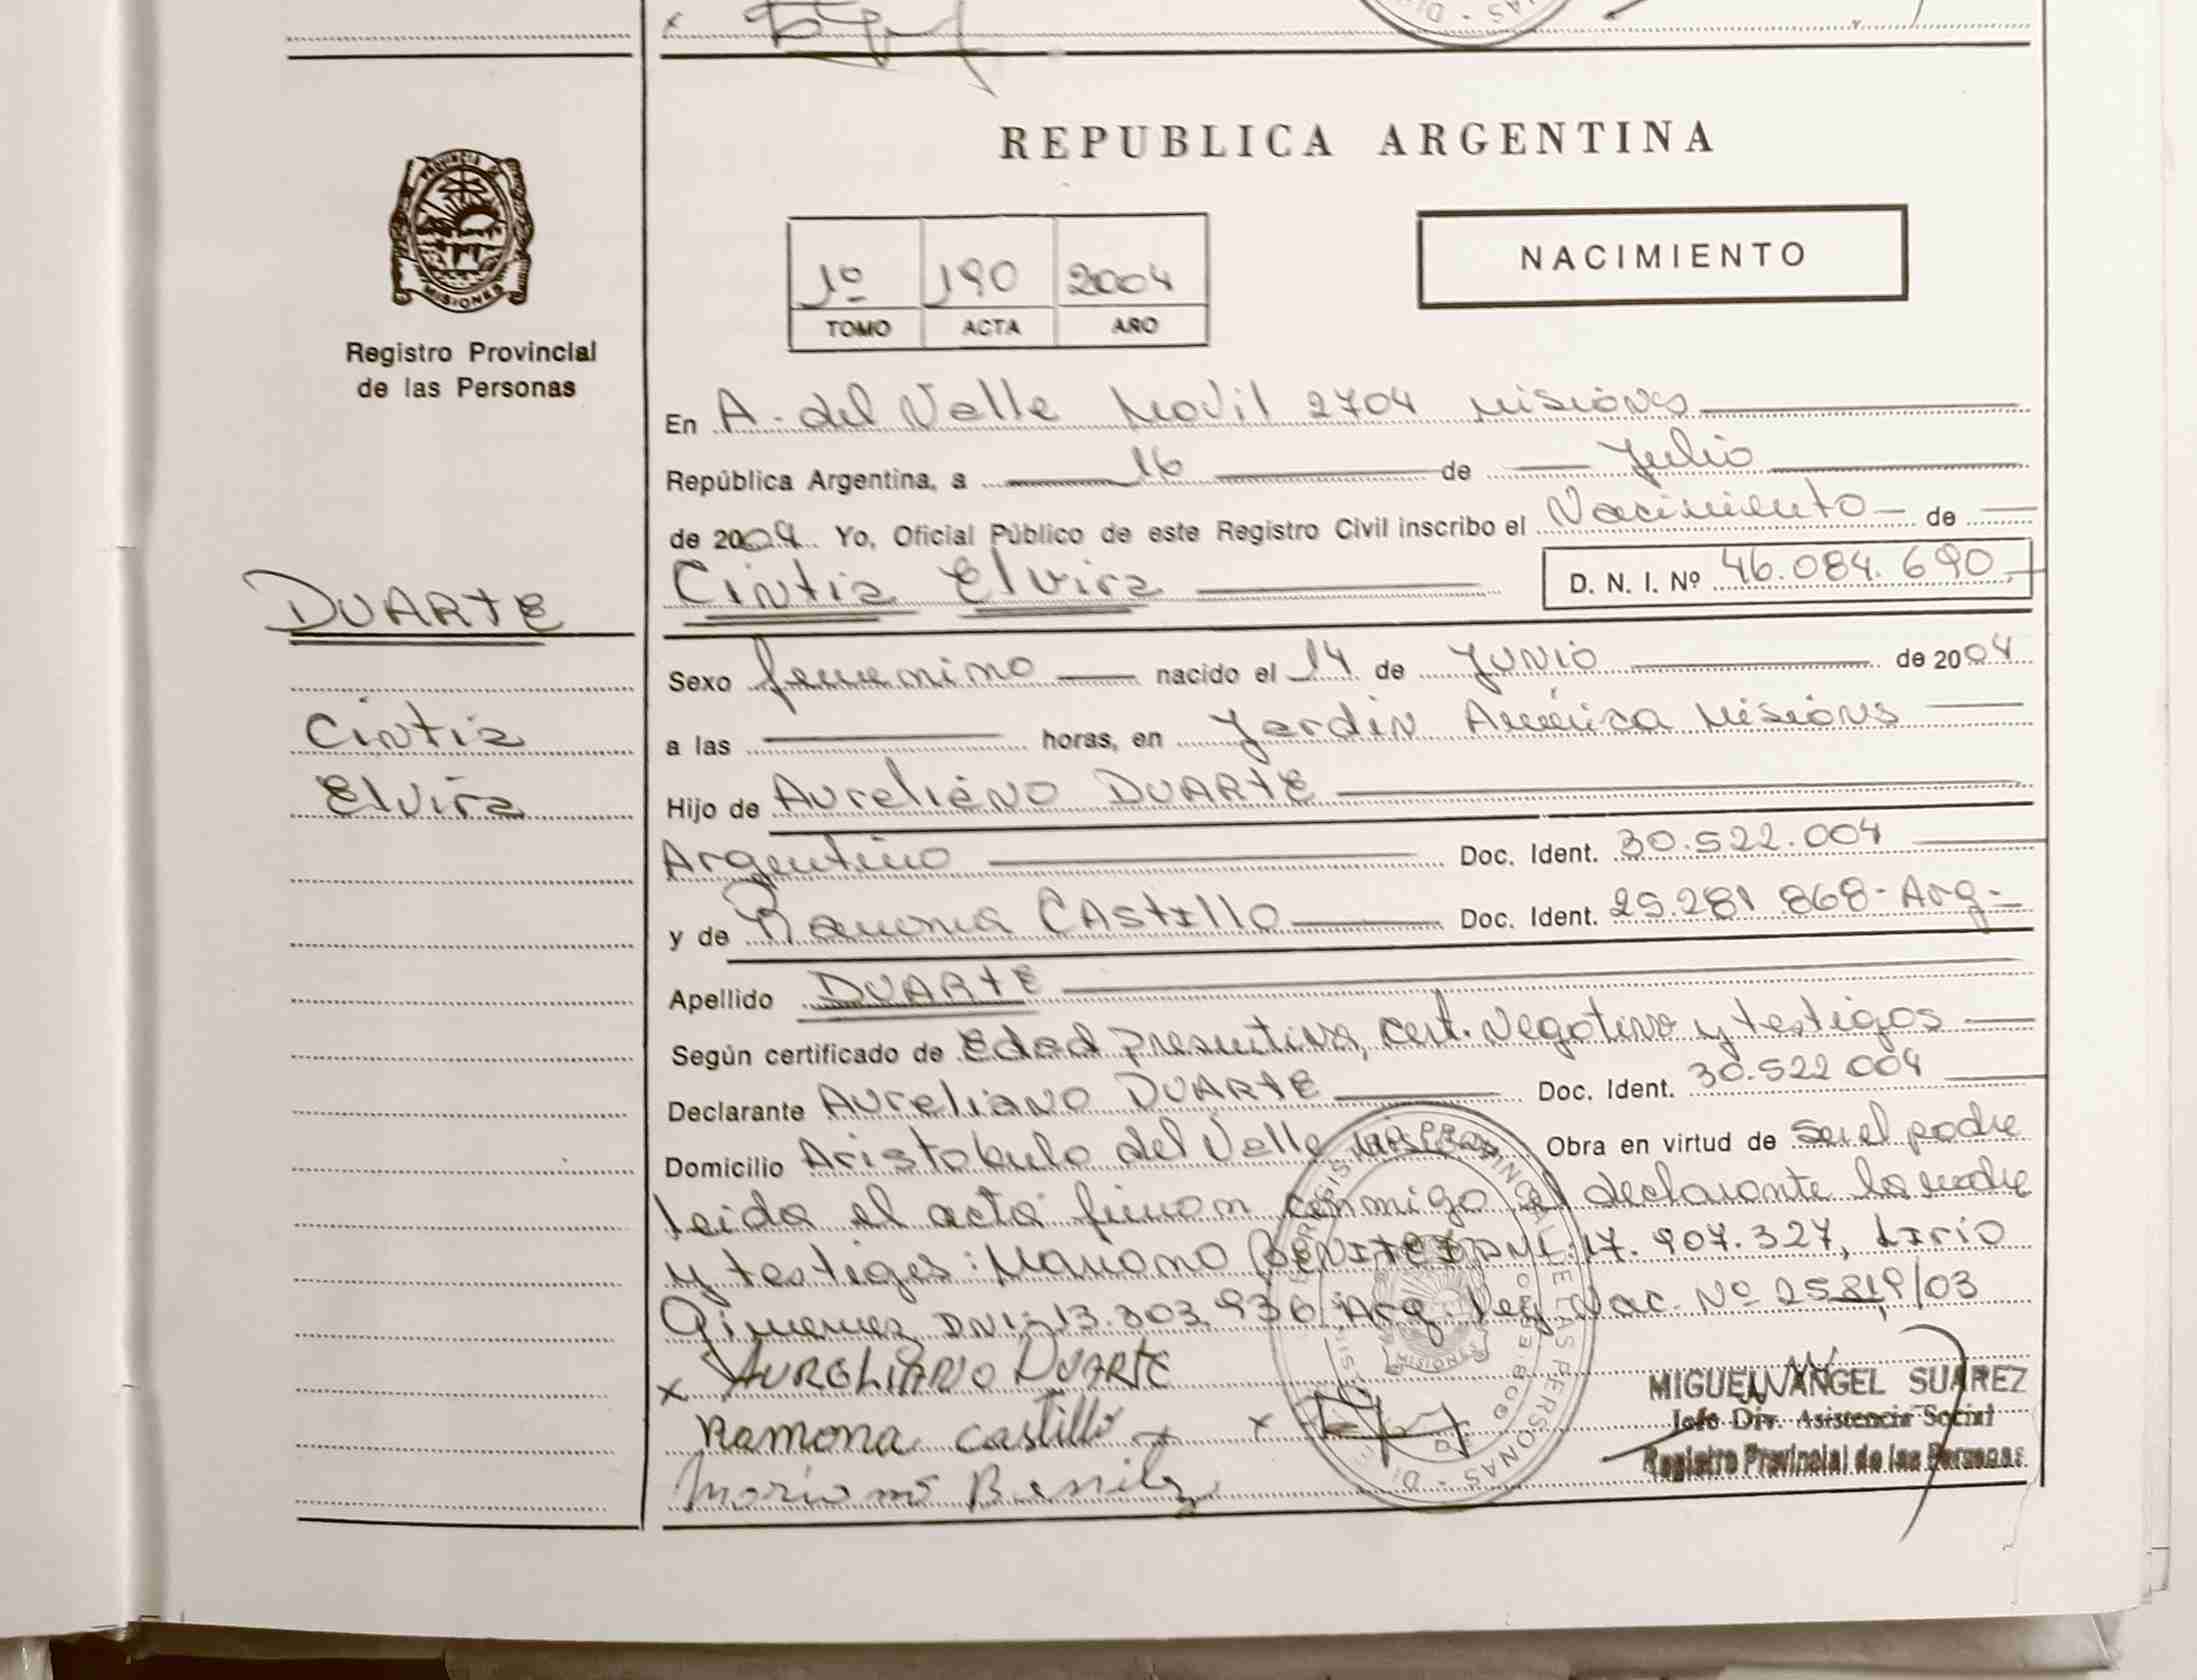 REPUBLICA ARGENTINA
PROVINCIA
MISIONES
Registro Provincial
de las Personas
1º 190 2004
TOMO ACTA AÑO
NACIMIENTO
En A. del Valle Movil 2704 Misiones
República Argentina, a 16 de Julio
de 2004 Yo, Oficial Público de este Registro Civil inscribo el Nacimiento de
Cintia Elvira D. N. I. Nº 46.084.690
DUARTE
Cintia
Elvira
Sexo femenino nacido el 14 de Junio de 2004
a las horas, en Jardin América Misions
Hijo de Aureliano DUARTE
Argentino Doc. Ident. 30.522.004
y de Ramona CAstIllo Doc. Ident. 25.281.868-Arg-
Apellido DUARTE
Según certificado de Edad presuntiva, cert. Negativo y testigos
Declarante Aureliano DUARTE Doc. Ident. 30.522.004
Domicilio Aristobulo del Valle Obra en virtud de ser el padre
Leida el acta firman conmigo el declarante la madre
y testigos: Mariano BENITEZ DNI: 17.907.327, Lirio
Gimenez DNI: 13.303.936 Arg. Ley Nac. Nº 25819/03
x AURELIANO DUARTE
Ramona castillo x x
Mariano Benitez
MIGUEL ANGEL SUAREZ
Jefe Div. Asistencia Social
Registro Provincial de las Personas